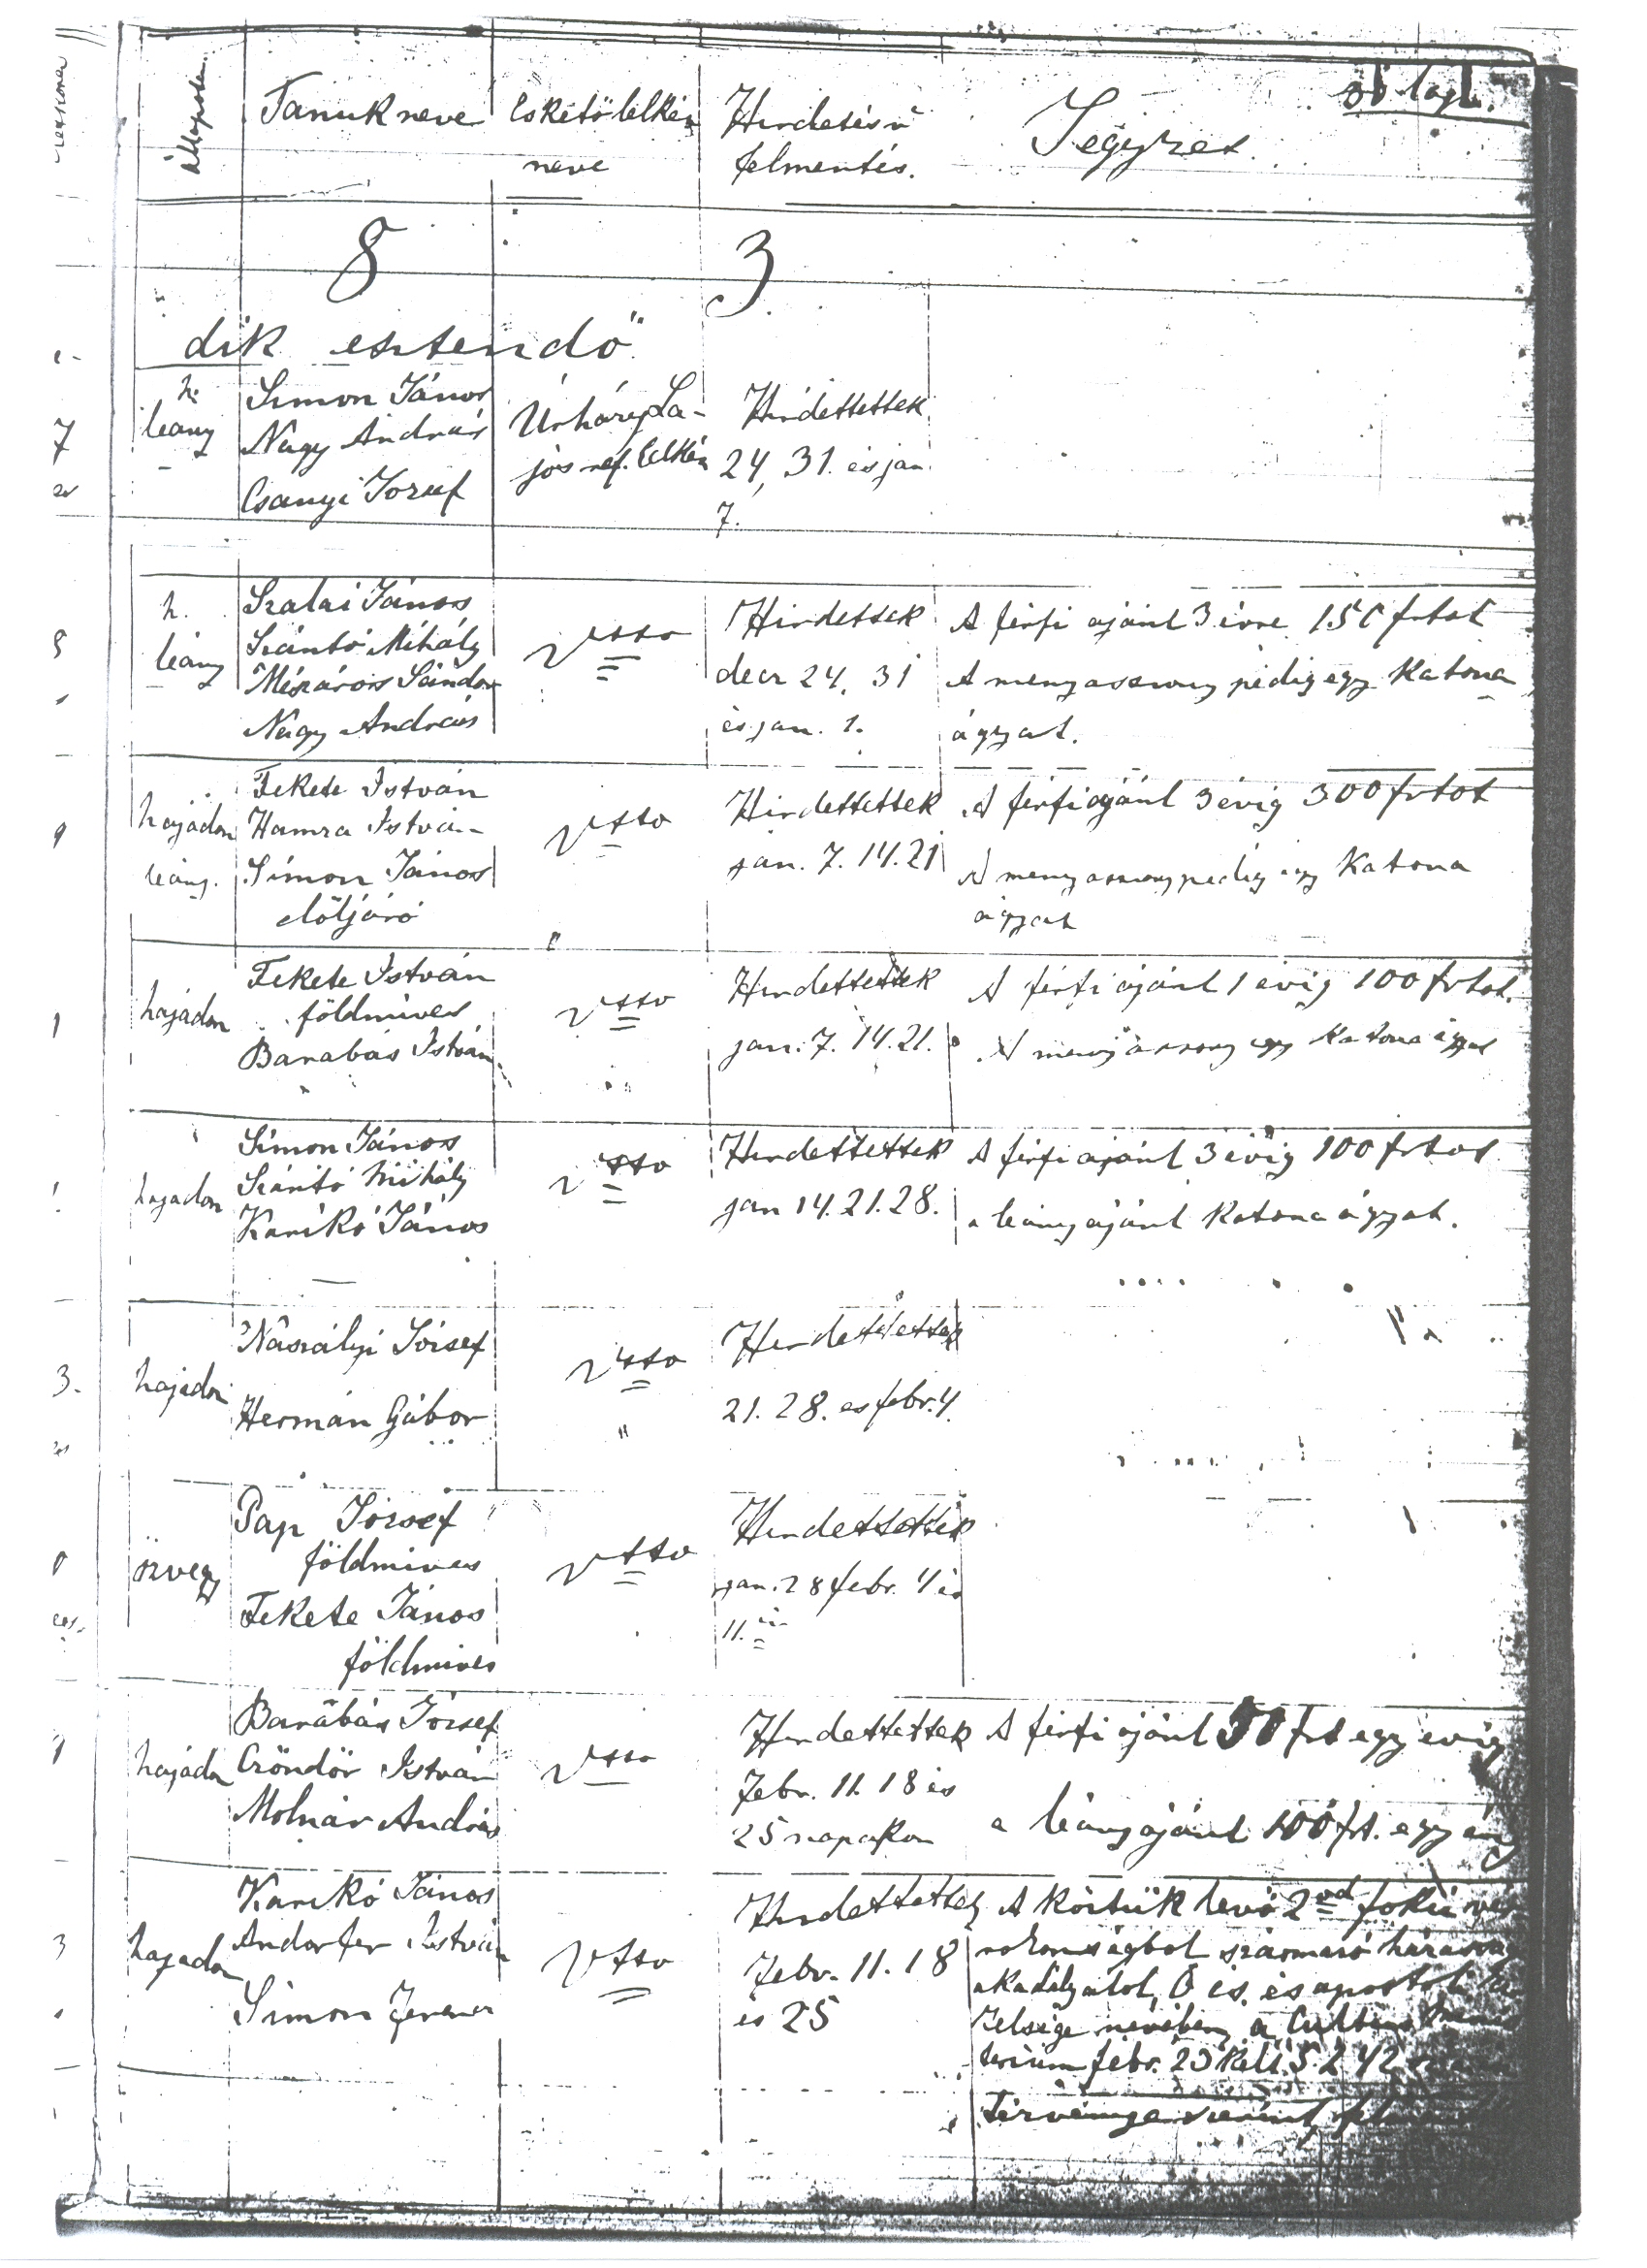 állapota Tanuk neve Esketö lelkész neve Hirdetés v. felmentés. Jegyzet
8 3
dik esztendő
h. leány
Simon János
Nagy András
Csanyi József
Úrházy La-
jos ref. lelkész
Hirdettettek
24, 31. és jan.
7.
h. leány
Szalai János
Szántó Mihály
Mészáros Sándor
Nagy András
Hirdettek
decz 24, 31
és jan. 1.
A férfi ajánl 3 évre 150 frtot
A menyasszony pedig egy Katona
ágyat.
hajadon leány.
Fekete István
Hamza István
Simon János
előljáró
Hirdettettek
jan. 7. 14. 21
A férfi ajánl 3 évig 300 frtot
A menyasszony pedig egy Katona
ágyat
hajadon
Fekete István
földmives
Barabás István
Hirdettettek
jan. 7. 14. 21.
A férfi ajánl 1 évig 100 frtot.
A menyasszony egy Katona ágyat
hajadon
Simon János
Szántó Mihály
Karikó János
Hirdettettek
jan 14. 21. 28.
A férfi ajánl 3 évig 100 frtot
a leány ajánl Katona ágyat.
hajadon
Naszályi József
Hermán Gábor
Hirdettettek
21. 28. es febr. 4.
özvegy
Pap József
földmives
Fekete János
földmives
Hirdettettek
jan. 28 febr. 4 és
11.
hajadon
Barabás József
Csöndör István
Molnár András
Hirdettettek
Febr. 11. 18 és
25 napokon
A férfi ajánl 50 frt egy evig
a leány ajánl 100 frt. egy
hajadon
Karikó János
Andorfer István
Simon Ferencz
Hirdettettek
Febr. 11. 18
es 25
A köztük levő 2od fokú
rokonságbol származó
akadályatol, Ő cs. és apostoli
Felsége nevében a Cultus
terium febr. 23 kelt 5242